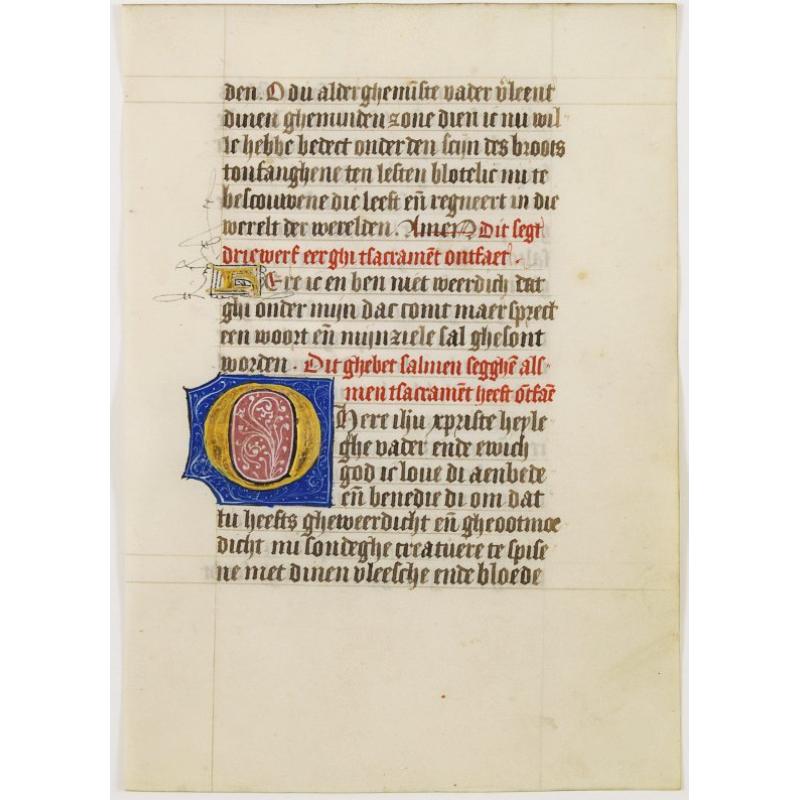 den. O du alderghemīste vader v̄leent
dinen ghemīnden zone dien ic nu wil-
le hebbe bedect onder den scijn des broots
tontfanghene ten lesten blotelic mi te
bescouwene die leeft en̄ regneert in die
werelt der werelden. Amen Dit segt
driewerf eer ghi tsacramēt ontfaet.
Here ic en ben niet weerdich dat
ghi onder mijn dac comt maer sprect
een woort en̄ mijn ziele sal ghesont
worden. Dit ghebet salmen segghē als-
men tsacramēt heeft ōtfaē
O here ihū xpriste heyle
ghe vader ende ewich
god ic love di aenbede
en̄ benedie di om dat
tu heefts gheweerdicht en̄ gheootmoe
dicht mi sondeghe creatuere te spise
ne met dinen vleesche ende bloede